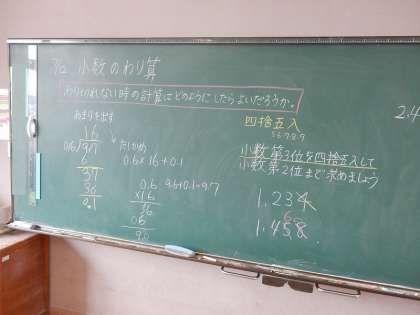 7/2 小数のわり算
わりきれない時の計算はどのようにしたらよいだろうか。
あまりを出す
16
0.6)9.7
6
37
36
0.1
たしかめ
0.6×16+0.1
9.6+0.1=9.7
0.6
×16
36
06
9.6
四捨五入
5 6 7 8 9
小数第3位を四捨五入して
小数第2位まで求めましょう
1.234
6
1.458
2.4